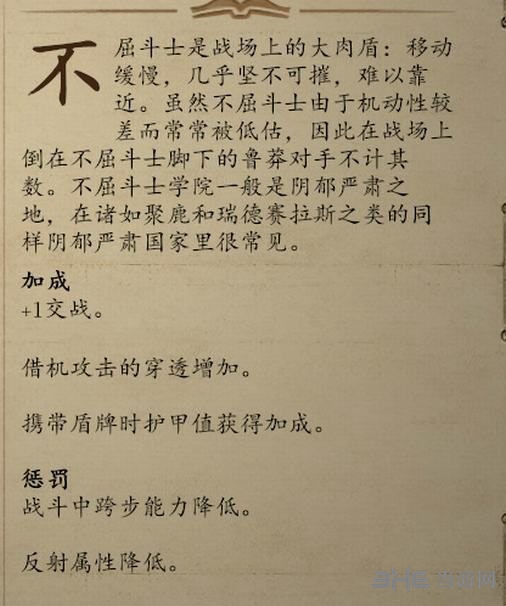 不屈斗士是战场上的大肉盾：移动
缓慢，几乎坚不可摧，难以靠
近。虽然不屈斗士由于机动性较
差而常常被低估，因此在战场上
倒在不屈斗士脚下的鲁莽对手不计其
数。不屈斗士学院一般是阴郁严肃之
地，在诸如聚鹿和瑞德赛拉斯之类的同
样阴郁严肃国家里很常见。
加成
+1交战。
借机攻击的穿透增加。
携带盾牌时护甲值获得加成。
惩罚
战斗中跨步能力降低。
反射属性降低。